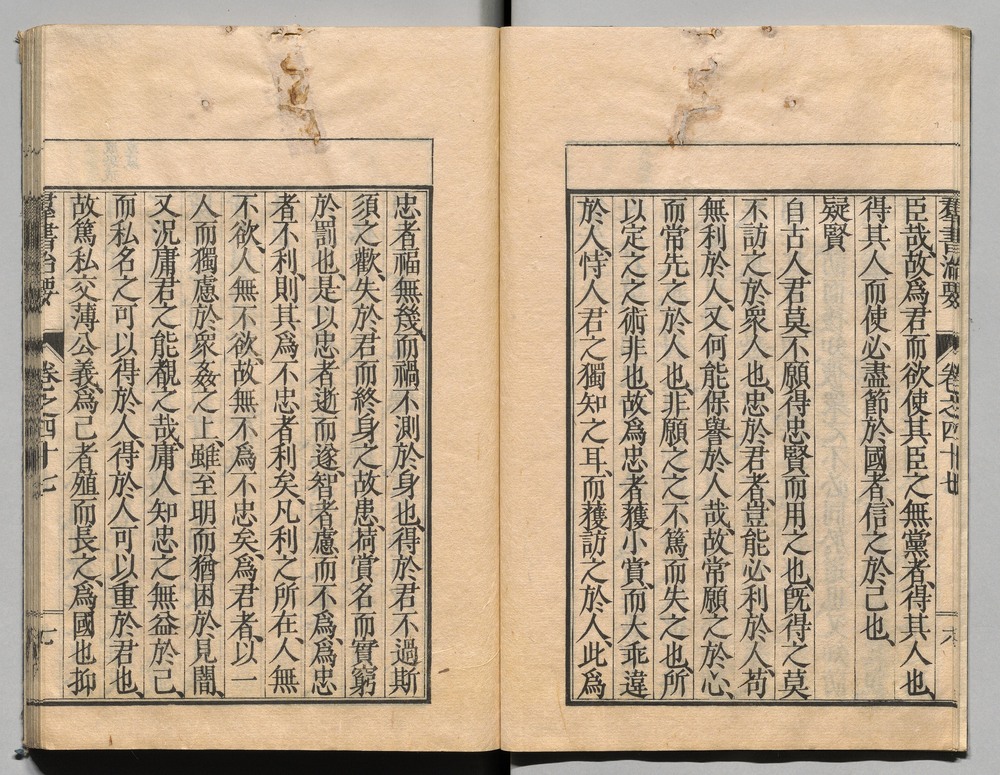 羣書治要 卷之四十七 六
臣哉、故爲君而欲使其臣之無黨者、得其人也、
得其人而使必盡節於國者、信之於己也、
疑賢
自古人君莫不願得忠賢而用之也、旣得之莫
不訪之於衆人也、忠於君者、豈能必利於人、苟
無利於人、又何能保譽於人哉、故常願之於心、
而常先之於人也、非願之之不篤而失之也、所
以定之之術非也、故爲忠者獲小賞、而大乖違
於人、恃人君之獨知之耳、而獲訪之於人、此爲
忠者福無幾、而禍不測於身也、得於君不過斯
須之歡、失於君而終身之故患、荷賞名而實窮
於罰也、是以忠者逝而遂、智者慮而不爲、爲忠
者不利、則其爲不忠者利矣、凡利之所在、人無
不欲、人無不欲、故無不爲不忠矣、爲君者、以一
人而獨慮於衆姦之上、雖至明而猶困於見闇、
又況庸君之能覩之哉、庸人知忠之無益於己、
而私名之可以得於人、得於人可以重於君也、
故篤私交薄公義、爲己者殖而長之、爲國也抑
羣書治要 卷之四十七 七